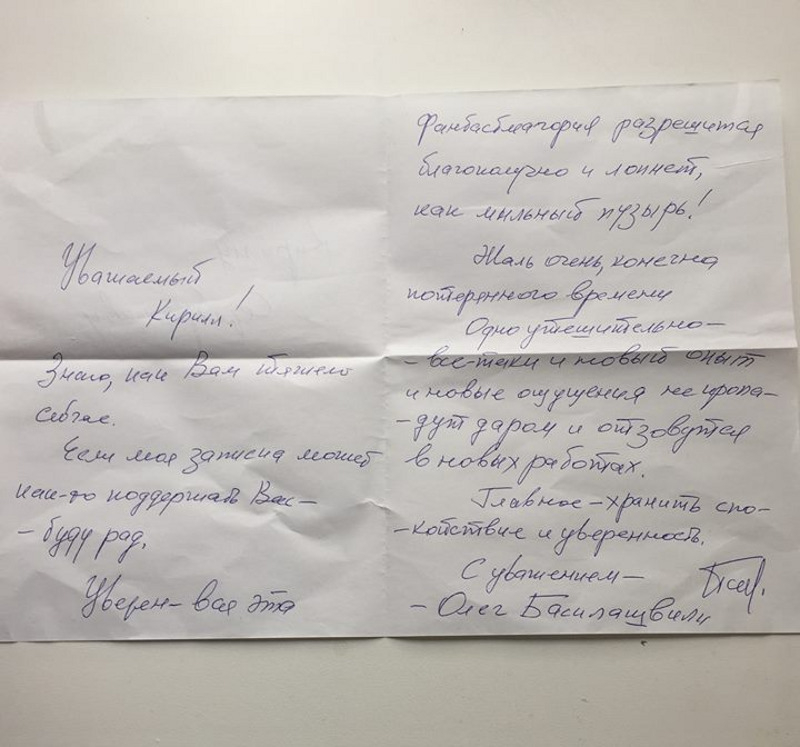 Уважаемый
Кирилл!
Знаю, как Вам тяжело
сейчас.
Если моя записка может
как-то поддержать Вас –
– буду рад.
Уверен – вся эта
Фантасмагория разрешится
благополучно и лопнет,
как мыльный пузырь!
Жаль очень, конечно
потерянного времени
Одно утешительно –
– все-таки и новый опыт
и новые ощущения не пропа-
-дут даром и отзовутся
в новых работах.
Главное – хранить спо-
-койствие и уверенность.
С уважением –
– Олег Басилашвили